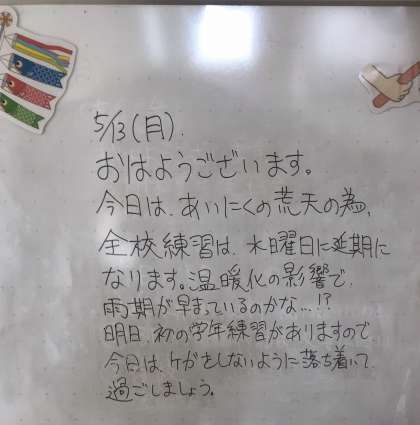 5/13(月).
おはようございます。
今日は、あいにくの荒天の為、
全校練習は、水曜日に延期に
なります。温暖化の影響で、
雨期が早まっているのかな…!?
明日、初の学年練習がありますので、
今日は、ケガをしないように落ち着いて
過ごしましょう。